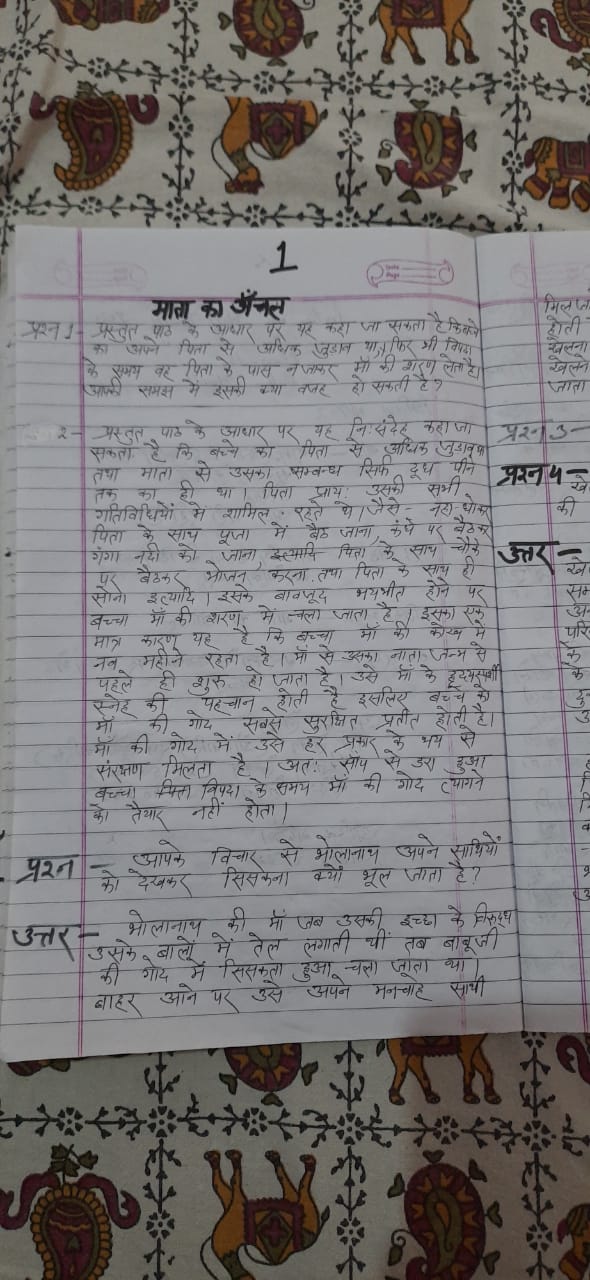 1
माता का अँचल
प्रश्न 1- प्रस्तुत पाठ के आधार पर यह कहा जा सकता है कि बच्चे
का अपने पिता से अधिक जुड़ाव था, फिर भी विपदा
के समय वह पिता के पास न जाकर माँ की शरण लेता है।
आपकी समझ में इसकी क्या वजह हो सकती है?
2- प्रस्तुत पाठ के आधार पर यह निःसंदेह कहा जा
सकता है कि बच्चे का पिता से अधिक जुड़ाव था
तथा माता से उसका सम्बन्ध सिर्फ दूध पीने
तक का ही था। पिता प्रायः उसकी सभी
गतिविधियों में शामिल रहते थे। जैसे- नहा-धोकर
पिता के साथ पूजा में बैठ जाना, कंधे पर बैठकर
गंगा नदी को जाना, इत्यादि पिता के साथ चौके
पर बैठकर भोजन करना तथा पिता के साथ ही
सोना इत्यादि। इसके बावजूद भयभीत होने पर
बच्चा माँ की शरण में चला जाता है। इसका एक
मात्र कारण यह है कि बच्चा माँ की कोख में
नव महीने रहता है। माँ से उसका नाता जन्म से
पहले ही शुरू हो जाता है। उसे माँ के हृदयस्पर्शी
स्नेह की पहचान होती है इसलिए बच्चे को
माँ की गोद सबसे सुरक्षित प्रतीत होती है।
माँ की गोद में उसे हर प्रकार के भय से
संरक्षण मिलता है। अतः साँप से डरा हुआ
बच्चा पिता विपदा के समय माँ की गोद त्यागने
को तैयार नहीं होता।
प्रश्न - आपके विचार से भोलानाथ अपने साथियों
को देखकर सिसकना क्यों भूल जाता है?
उत्तर - भोलानाथ की माँ जब उसकी इच्छा के विरुद्ध
उसके बालों में तेल लगाती थीं तब बाबूजी
की गोद में सिसकता हुआ चला जाता था।
बाहर आने पर उसे अपने मनचाह साथी
मिल जा
होती
खेलना
खेलने
जाता
प्रश्न 3-
प्रश्न 4-
की
उत्तर -
के
के